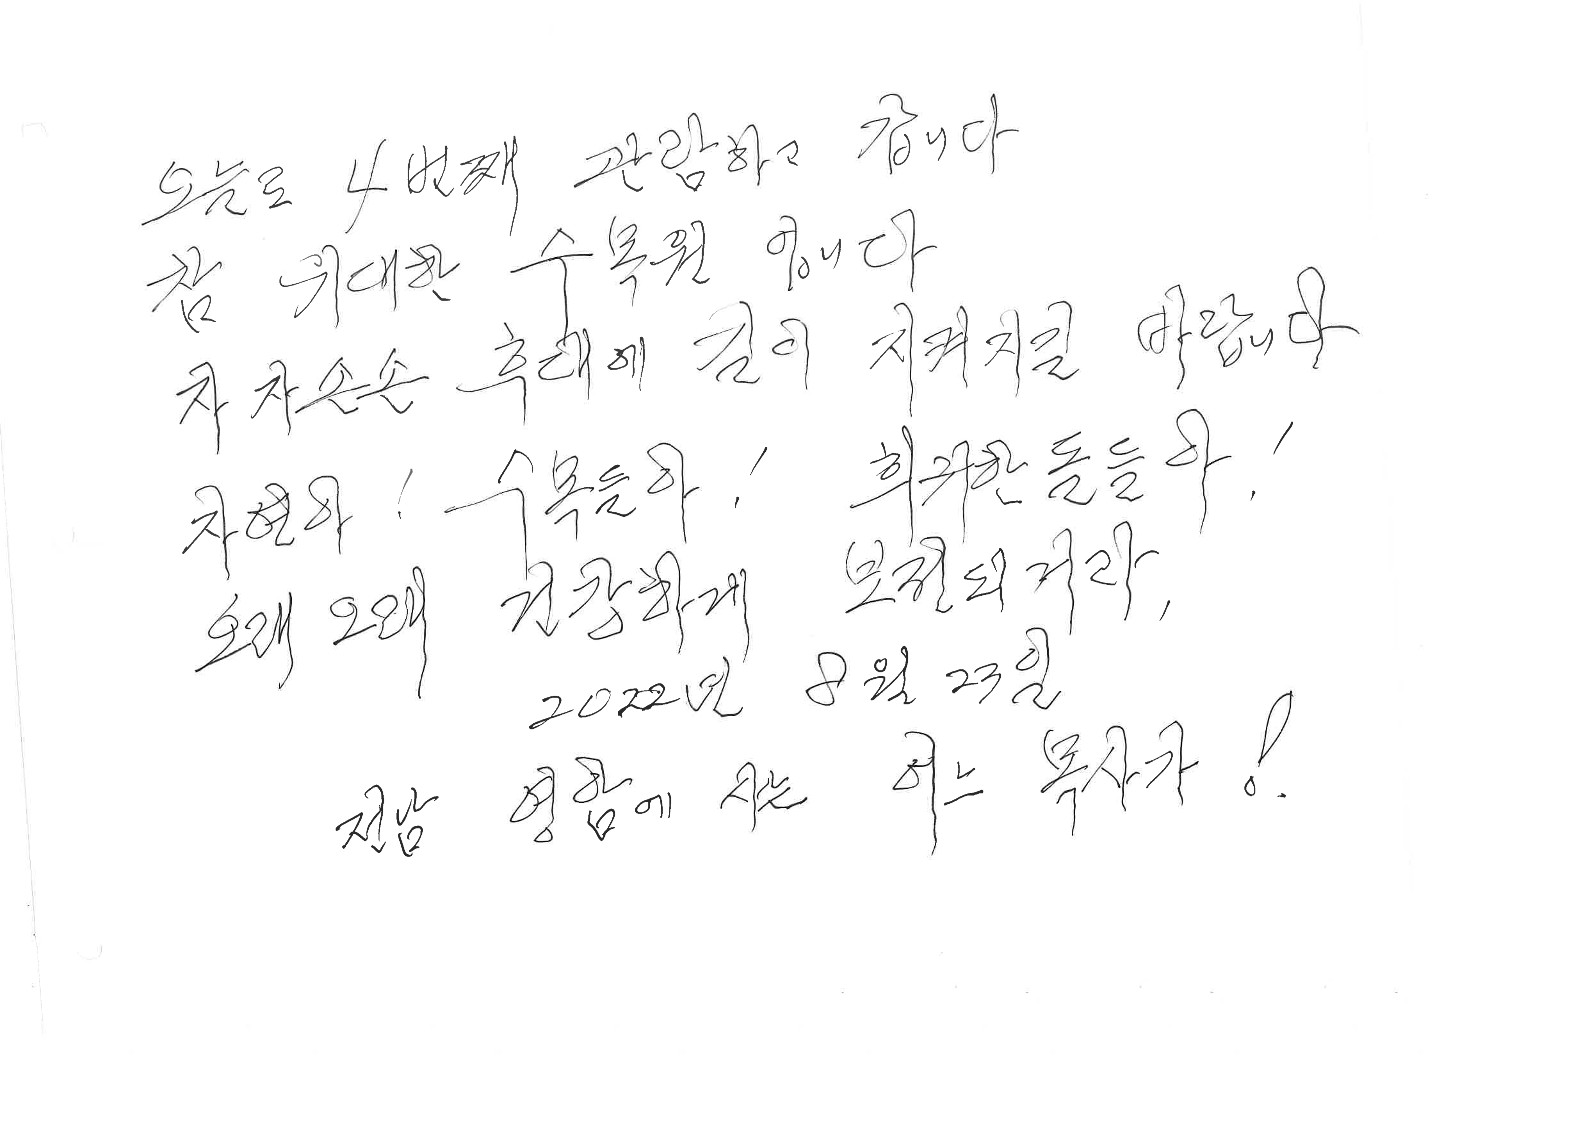 오늘로 4번째 관람하고 갑니다
참 위대한 수목원 입니다
자자손손 후대에 길이 지켜지길 바랍니다
자연아! 수목들아! 희귀한 돌들아!
오래 오래 건강하게 보전되거라,
2022년 8월 23일
전남 영암에 사는 어느 목사가!